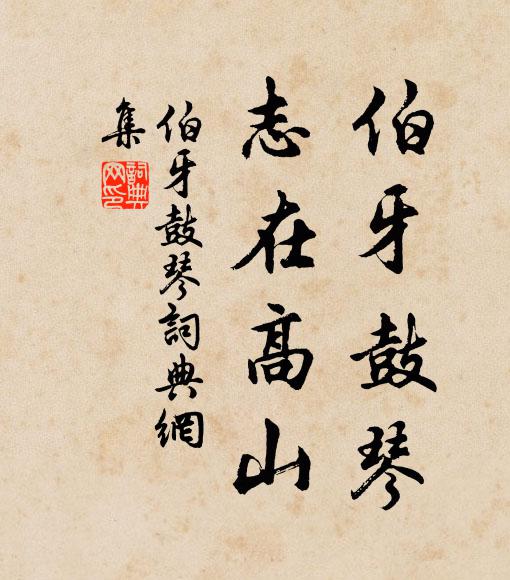 伯牙鼓琴
志在高山
伯牙鼓琴詞典網
集
詞典
网印